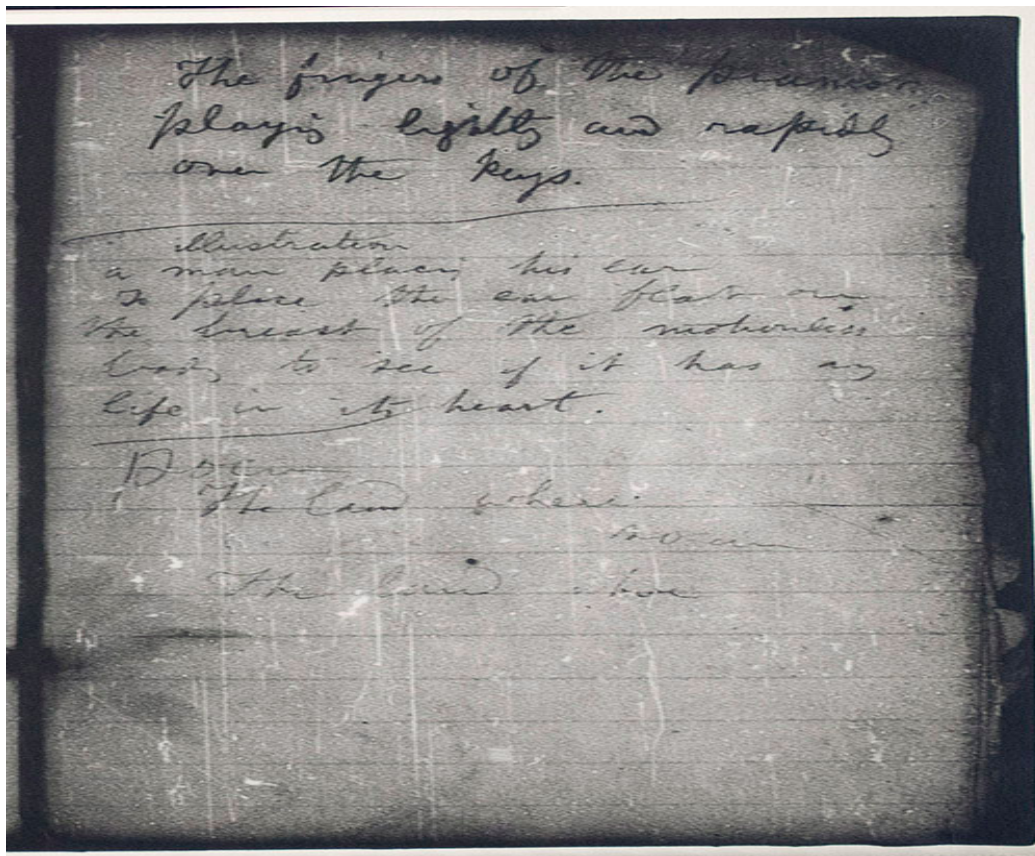 The fingers of the pianist
playing lightly and rapidly
over the keys.
illustration
a man placing his ear
to place the ear flat on
the breast of the motionless
body to see if it has any
life in its heart.
The land where
The land where